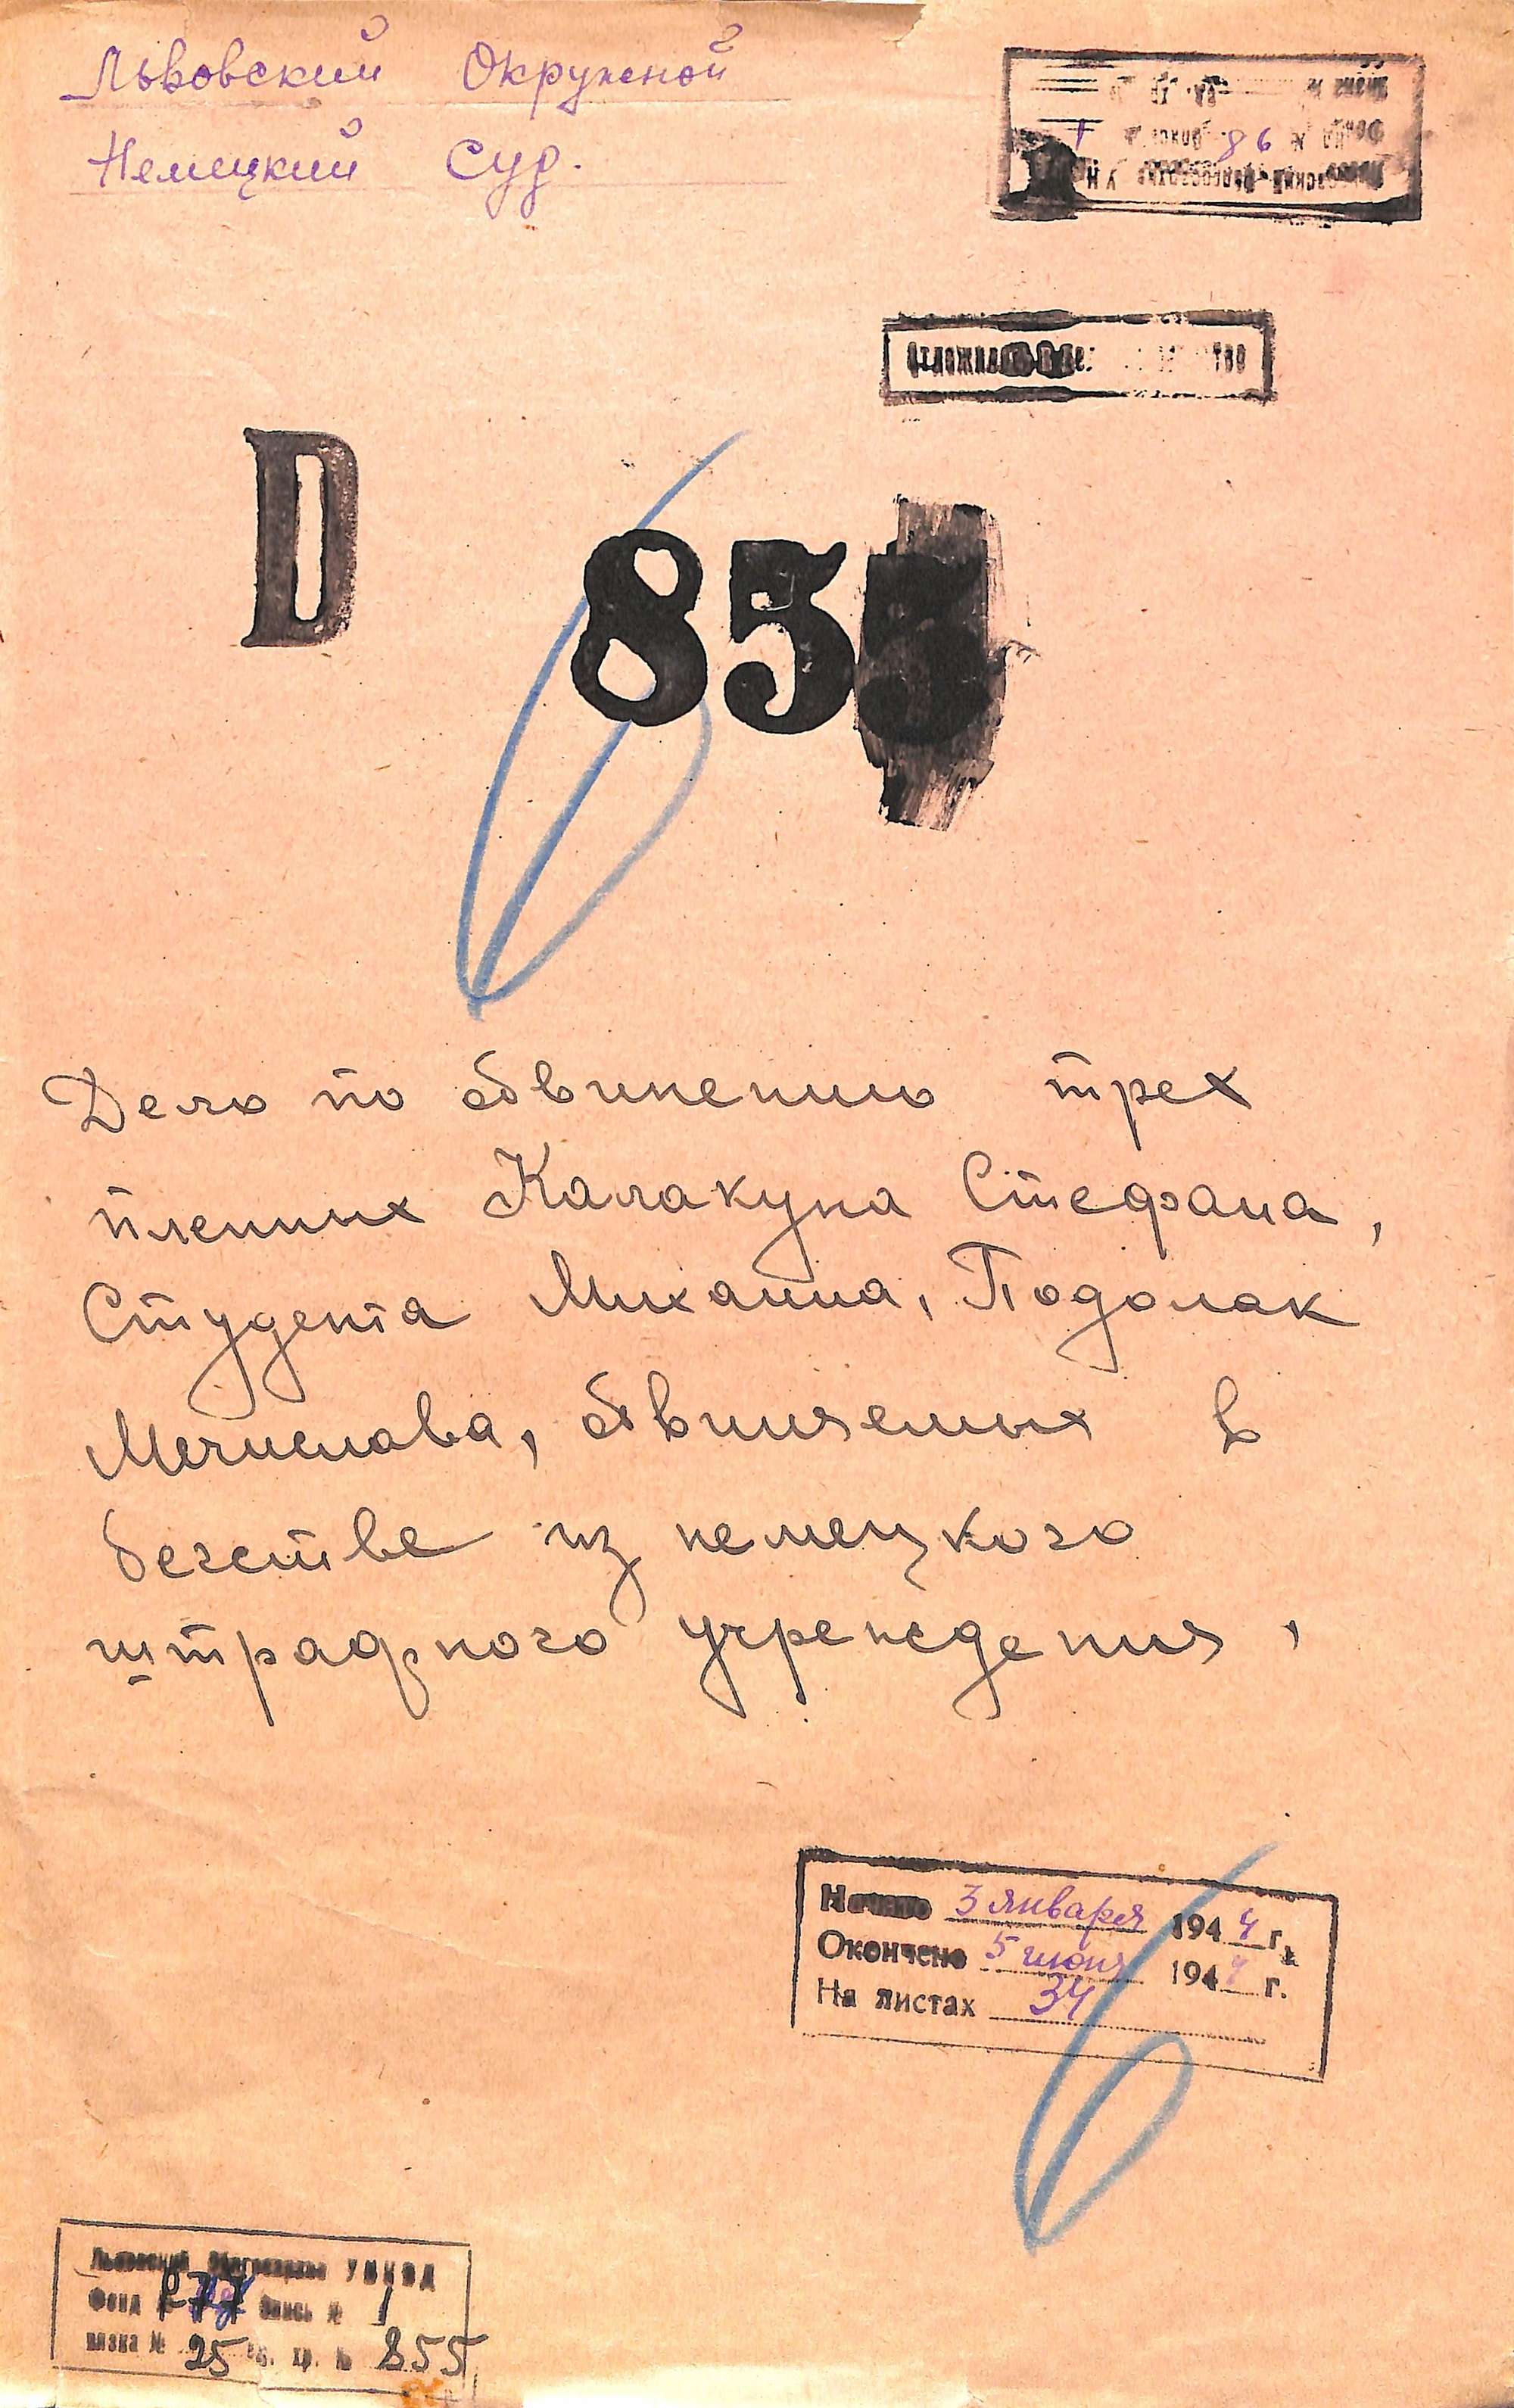 Львовский Окружной
Немецкий Суд.
86
D
855
Дело по обвинению трех
пленных Калакуна Стефана,
Студента Михаила, Подолак
Мечислава, обвиняемых в
бегстве из немецкого
штрафного учреждения,
Начато 3 января 1944 г.
Окончено 5 июня 1944 г.
На листах 34
Львовский Облгосархив УНКВД
Фонд № Р77 Опись № 1
вязка № 25 ед. хр. № 855